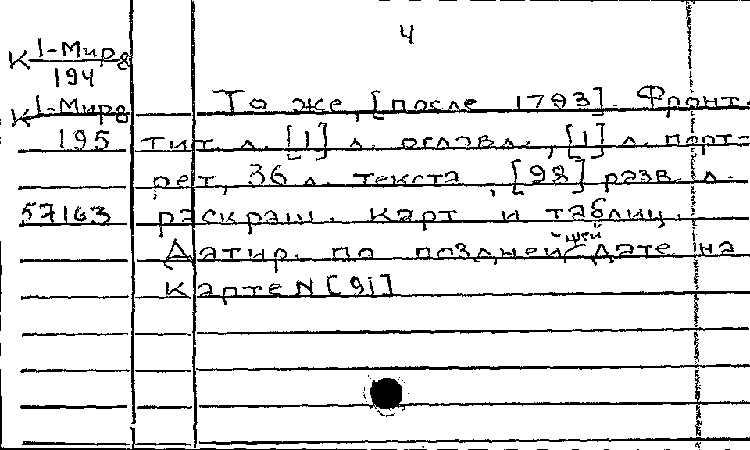 4
К 1-Мир8
194
К 1-Мир8
195
То же, [после 1793]. Фронт.
тит. л. [1] л. оглавл., [1] л. порт-
рет, 36 л. текста, [98] разв. л.
57163 раскраш. карт и таблиц.
Датир. по позднейшей дате на
карте N [91]